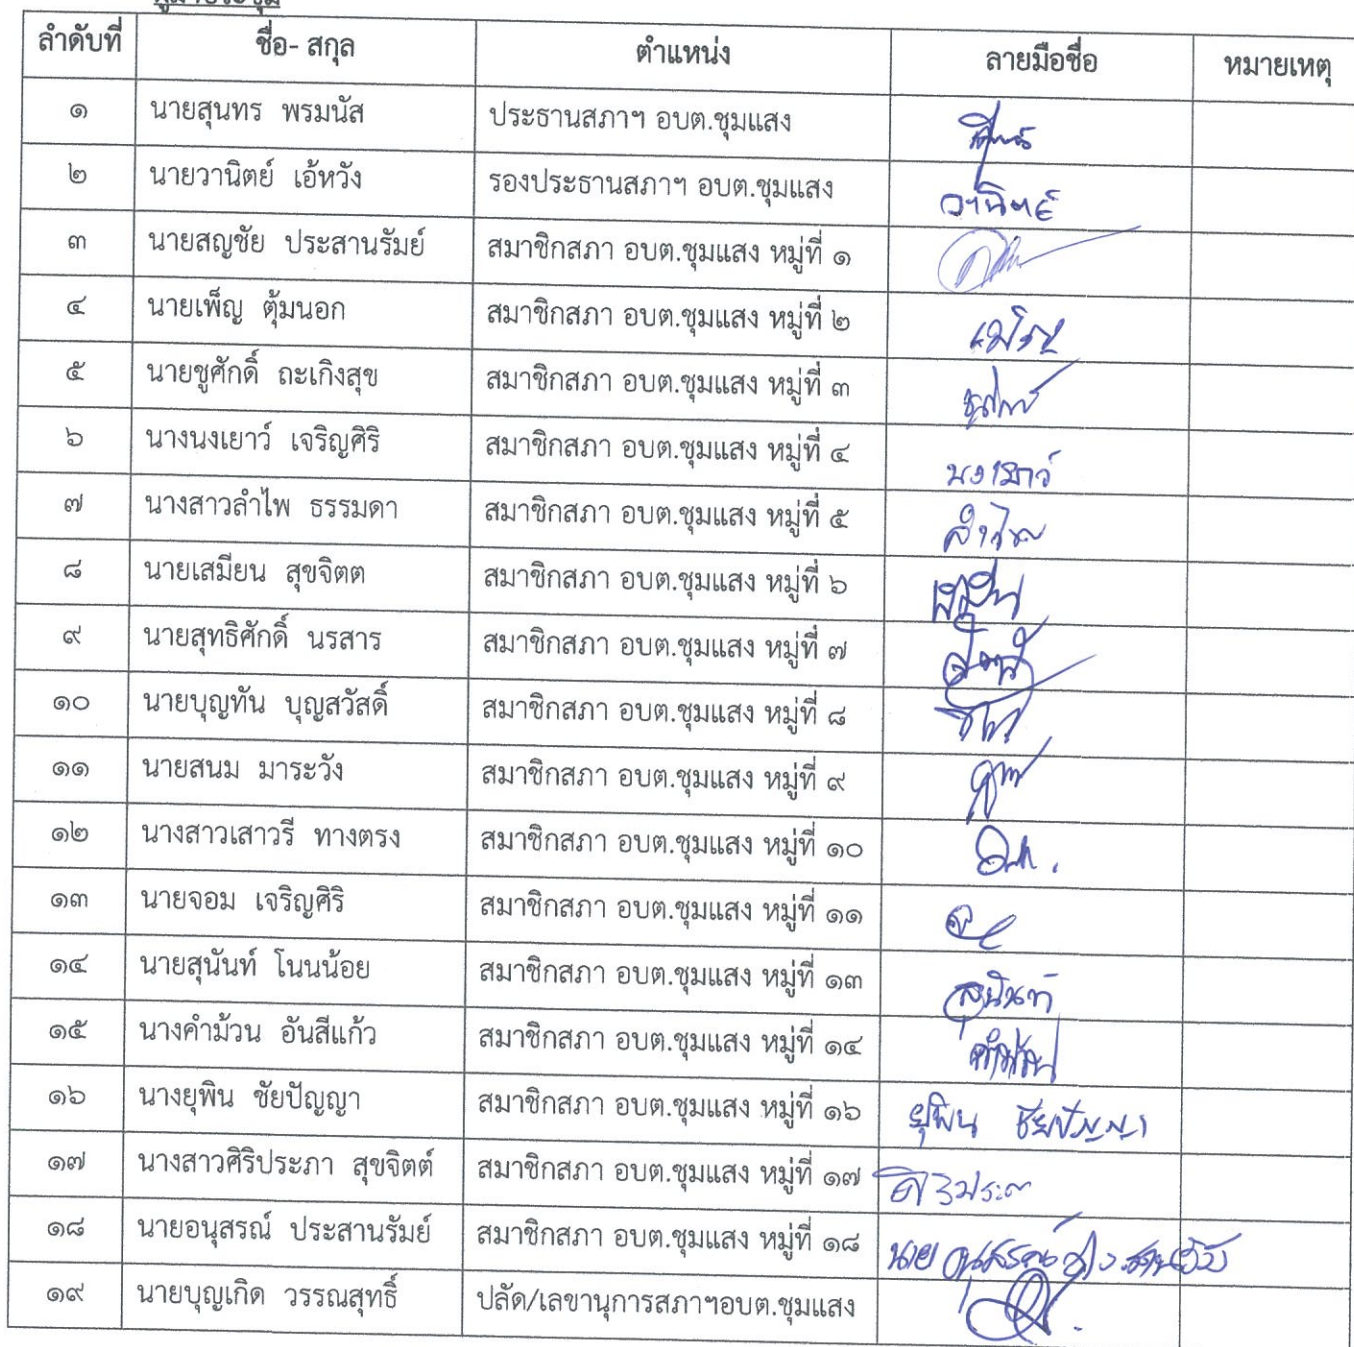 ผู้มาประชุม
ลำดับที่ ชื่อ- สกุล ตำแหน่ง ลายมือชื่อ หมายเหตุ
๑ นายสุนทร พรมนัส ประธานสภาฯ อบต.ชุมแสง
๒ นายวานิตย์ เอ้หวัง รองประธานสภาฯ อบต.ชุมแสง วานิตย์
๓ นายสญชัย ประสานรัมย์ สมาชิกสภา อบต.ชุมแสง หมู่ที่ ๑
๔ นายเพ็ญ ตุ้มนอก สมาชิกสภา อบต.ชุมแสง หมู่ที่ ๒
๕ นายชูศักดิ์ ถะเกิงสุข สมาชิกสภา อบต.ชุมแสง หมู่ที่ ๓
๖ นางนงเยาว์ เจริญศิริ สมาชิกสภา อบต.ชุมแสง หมู่ที่ ๔ นงเยาว์
๗ นางสาวลำไพ ธรรมดา สมาชิกสภา อบต.ชุมแสง หมู่ที่ ๕ ลำไพ
๘ นายเสมียน สุขจิตต สมาชิกสภา อบต.ชุมแสง หมู่ที่ ๖
๙ นายสุทธิศักดิ์ นรสาร สมาชิกสภา อบต.ชุมแสง หมู่ที่ ๗
๑๐ นายบุญทัน บุญสวัสดิ์ สมาชิกสภา อบต.ชุมแสง หมู่ที่ ๘
๑๑ นายสนม มาระวัง สมาชิกสภา อบต.ชุมแสง หมู่ที่ ๙
๑๒ นางสาวเสาวรี ทางตรง สมาชิกสภา อบต.ชุมแสง หมู่ที่ ๑๐
๑๓ นายจอม เจริญศิริ สมาชิกสภา อบต.ชุมแสง หมู่ที่ ๑๑
๑๔ นายสุนันท์ โนนน้อย สมาชิกสภา อบต.ชุมแสง หมู่ที่ ๑๓ สุนันท์
๑๕ นางคำม้วน อันสีแก้ว สมาชิกสภา อบต.ชุมแสง หมู่ที่ ๑๔
๑๖ นางยุพิน ชัยปัญญา สมาชิกสภา อบต.ชุมแสง หมู่ที่ ๑๖ ยุพิน ชัยปัญญา
๑๗ นางสาวศิริประภา สุขจิตต์ สมาชิกสภา อบต.ชุมแสง หมู่ที่ ๑๗
๑๘ นายอนุสรณ์ ประสานรัมย์ สมาชิกสภา อบต.ชุมแสง หมู่ที่ ๑๘ นาย อนุสรณ์
๑๙ นายบุญเกิด วรรณสุทธิ์ ปลัด/เลขานุการสภาฯอบต.ชุมแสง